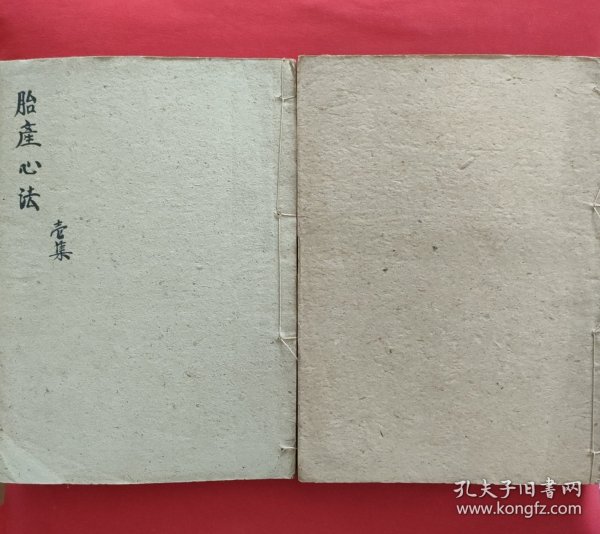 胎產心法
壹集
孔夫子旧书网
www.kongfz.com